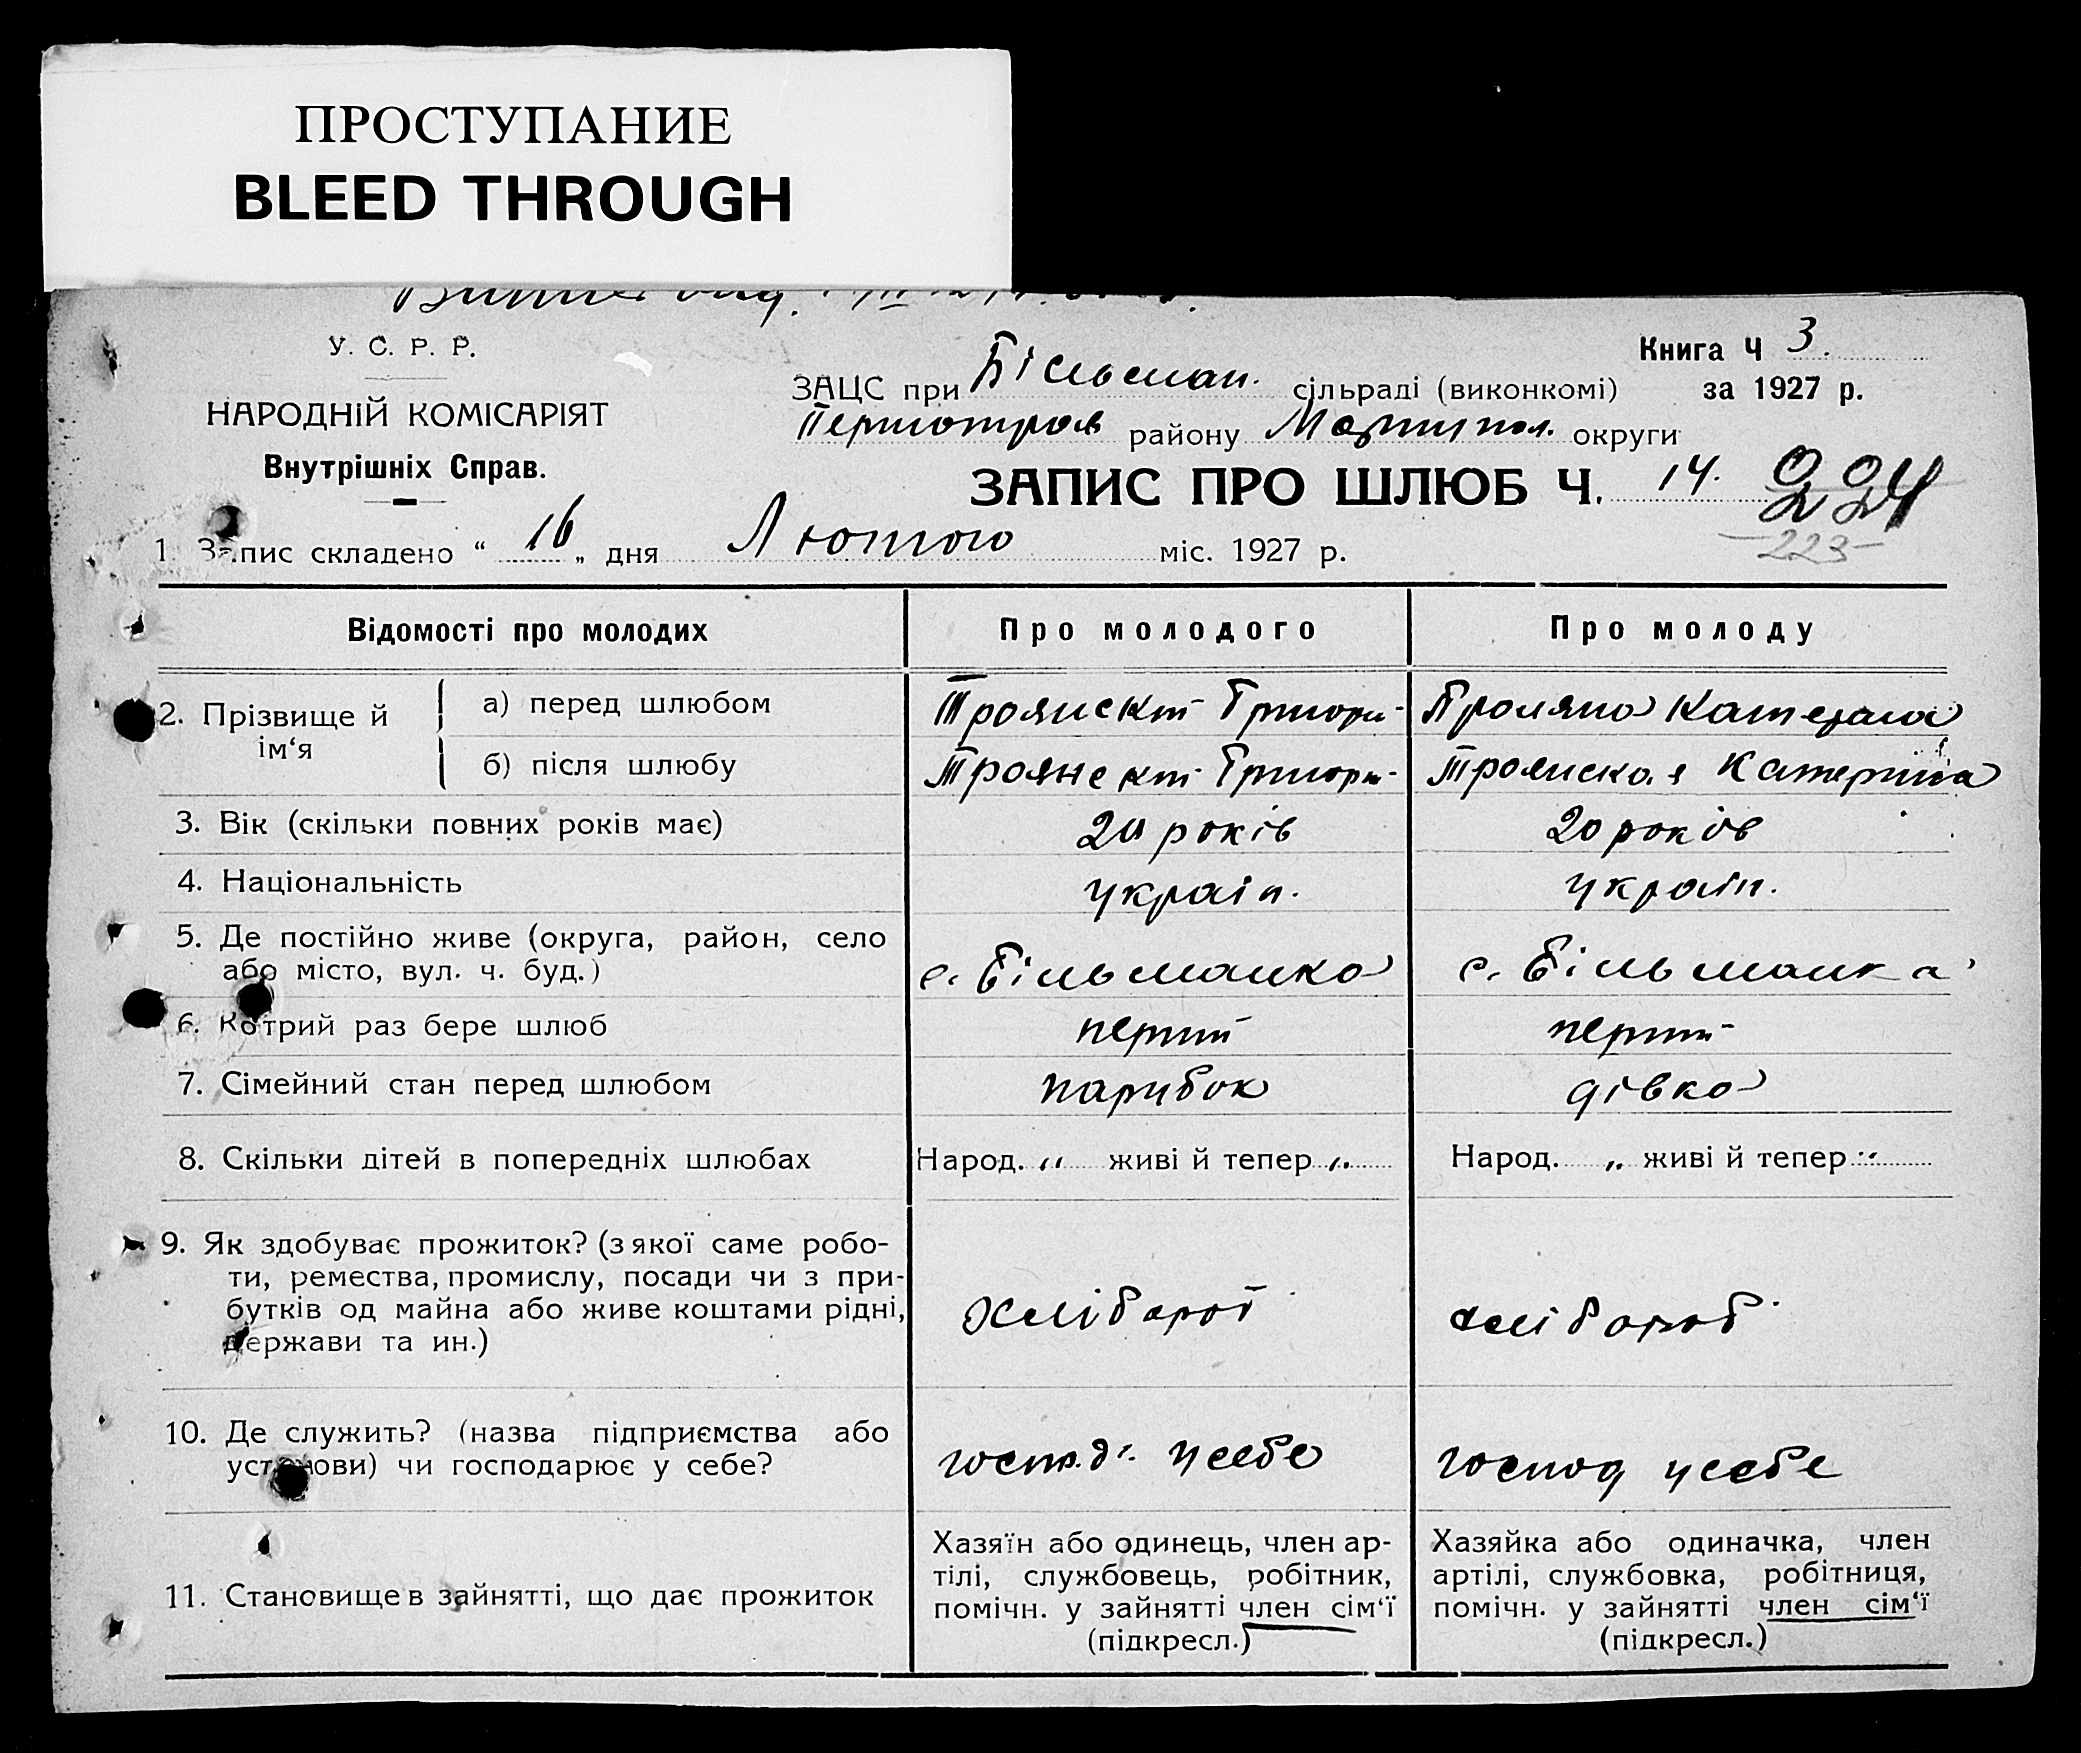 ПРОСТУПАНИЕ
BLEED THROUGH
У. С. Р. Р.
НАРОДНІЙ КОМІСАРІЯТ
Внутрішніх Справ.
ЗАЦС при Більман. сільраді (виконкомі)
Першотрав району Маріупол. округи
Книга Ч 3.
за 1927 р.
ЗАПИС ПРО ШЛЮБ Ч. 14. 224
223
1. Запис складено “ 16 „ дня Лютого міс. 1927 р.
Відомості про молодих Про молодого Про молоду
2. Прізвище й ім‘я
а) перед шлюбом Троянскій Григорій Катерина
б) після шлюбу Троянскій Григорій Троянская Катерина
3. Вік (скільки повних років має) років 20 років
4. Національність україн. україн.
5. Де постійно живе (округа, район, село
або місто, вул. ч. буд.) с. Більманка с. Більманка
6. Котрий раз бере шлюб перший перший
7. Сімейний стан перед шлюбом парубок дівка
8. Скільки дітей в попередніх шлюбах Народ. „ живі й тепер „ Народ. „ живі й тепер „
9. Як здобуває прожиток? (з якої саме робо-
ти, ремества, промислу, посади чи з при-
бутків од майна або живе коштами рідні,
держави та ин.) хлібороб хлібороб
10. Де служить? (назва підприємства або
установи) чи господарює у себе? господ. у себе господ у себе
11. Становище в зайнятті, що дає прожиток
Хазяїн або одинець, член ар-
тілі, службовець, робітник,
помічн. у зайнятті член сім‘ї
(підкресл.)
Хазяйка або одиначка, член
артілі, службовка, робітниця,
помічн. у зайнятті член сім‘ї
(підкресл.)